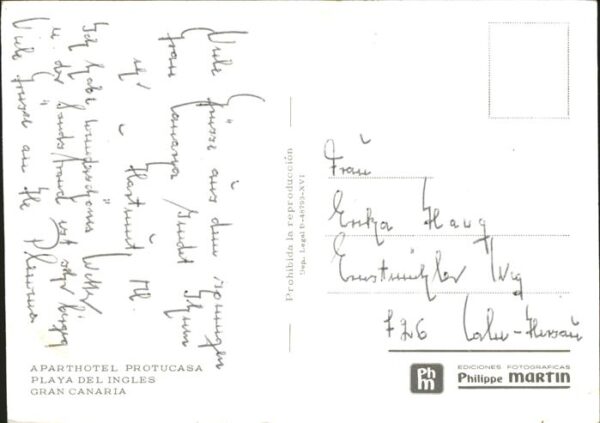 Viele Grüsse aus dem sonnigen
Gran Canaria sendet Ihnen
Hartmut
Ich habe wunderschönes Wetter
u. der Sandstrand ist sehr
Viele Grüsse an
Prohibida la reproducción
Dep. Legal B-48793-XVI
Frau
Erika Haug
Weg
726 Calw-Hirsau
APARTHOTEL PROTUCASA
PLAYA DEL INGLES
GRAN CANARIA
Ph m
EDICIONES FOTOGRAFICAS
Philippe MARTIN